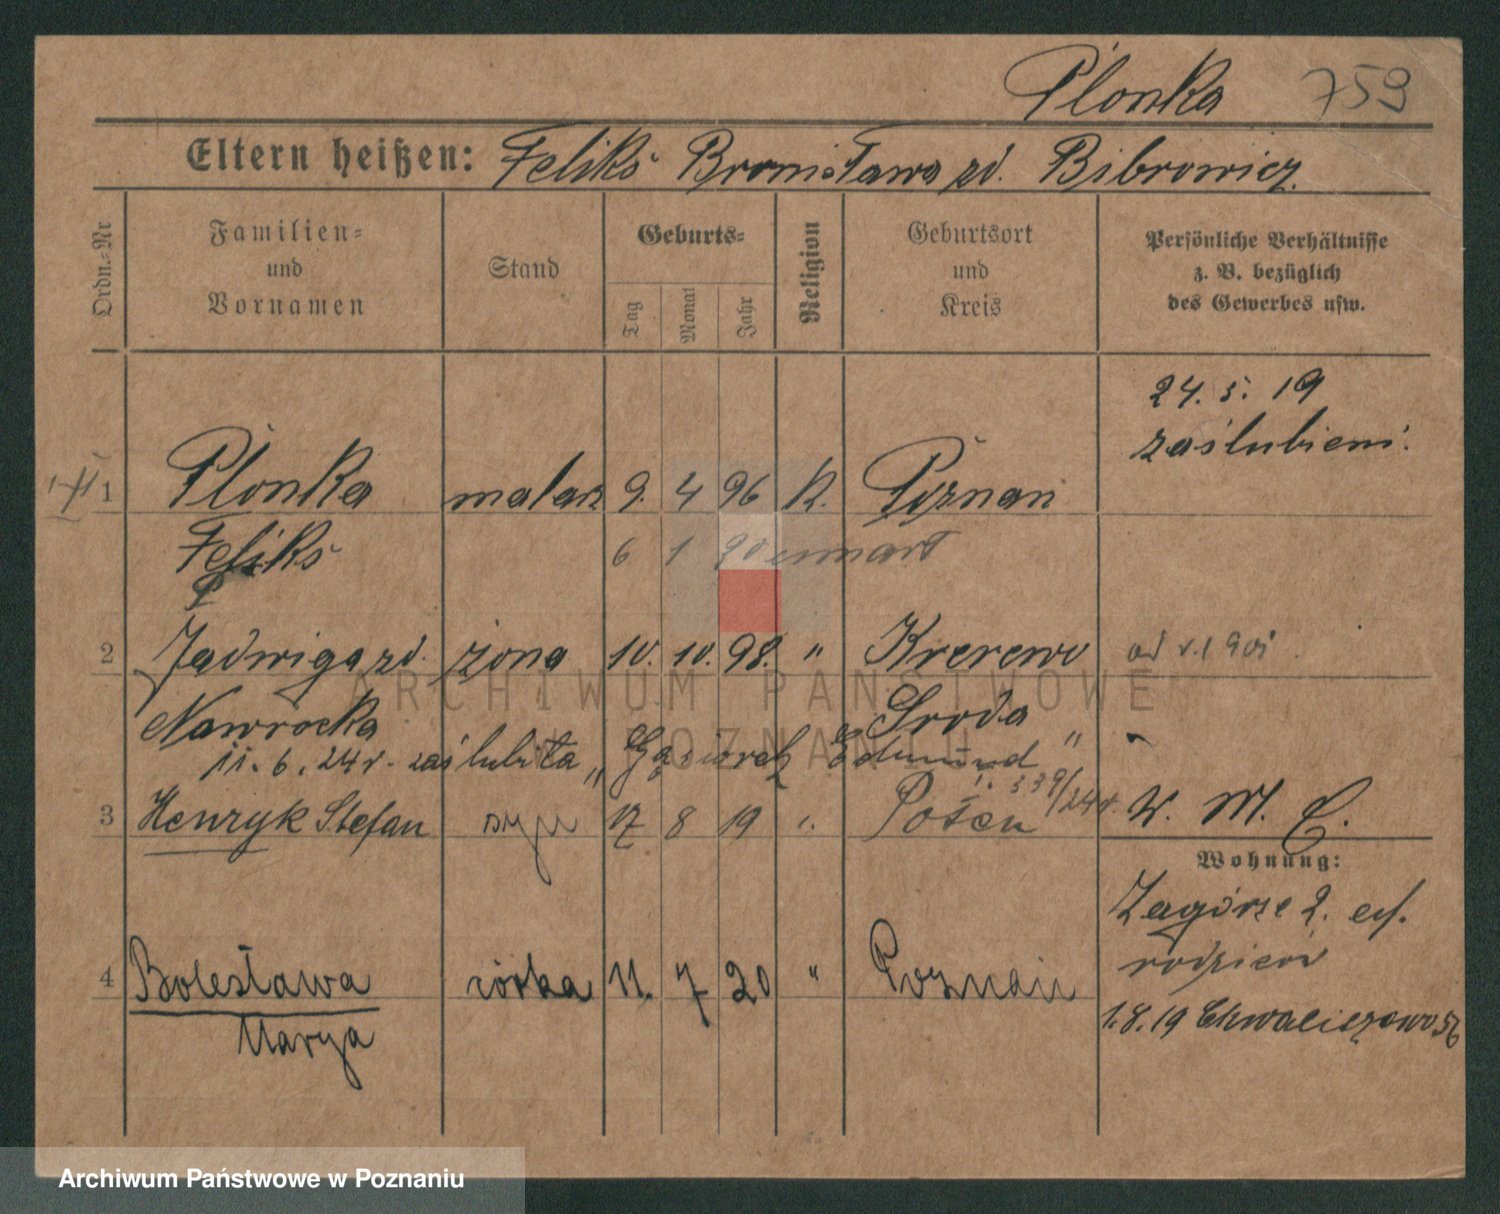 Plonka 759
Eltern heißen: Feliks Bronisława zd. Bibrowicz.
Ordn.=Nr
Familien=
und
Vornamen
Stand
Geburts=
Tag
Monat
Jahr
Religion
Geburtsort
und
Kreis
Persönliche Verhältnisse
z. B. bezüglich
des Gewerbes usw.
24. 5. 19
zaślubieni.
1 Plonka malarz 9. 4 96 K. Poznań
Feliks 6 1 umart
2 Jadwiga zd. żona 10. 10. 98. " Krerowo od r. 1901
Nawrocka Środa
11. 6. 24 r. zaślubiła " Gąsiorek Edmund "
339/24 r.
3 Henryk Stefan syn 17 8 19 Posen W. M. C.
Wohnung:
Zagórze 2. rodziców
4 Bolesława córka 11. 7 20 " Poznań
Marya
1.8.19 Chwaliszewo 56
ARCHIWUM PAŃSTWOWE
W POZNANIU
Archiwum Państwowe w Poznaniu